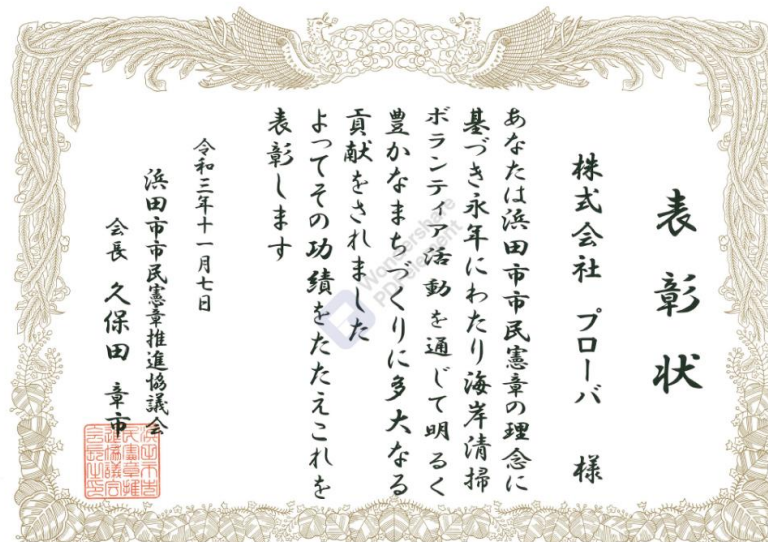 表彰状
株式会社 プローバ 様
あなたは浜田市市民憲章の理念に
基づき永年にわたり海岸清掃
ボランティア活動を通じて明るく
豊かなまちづくりに多大なる
貢献をされました
よってその功績をたたえこれを
表彰します
令和三年十一月七日
浜田市市民憲章推進協議会
会長 久保田 章市
Wondershare
PDFelement